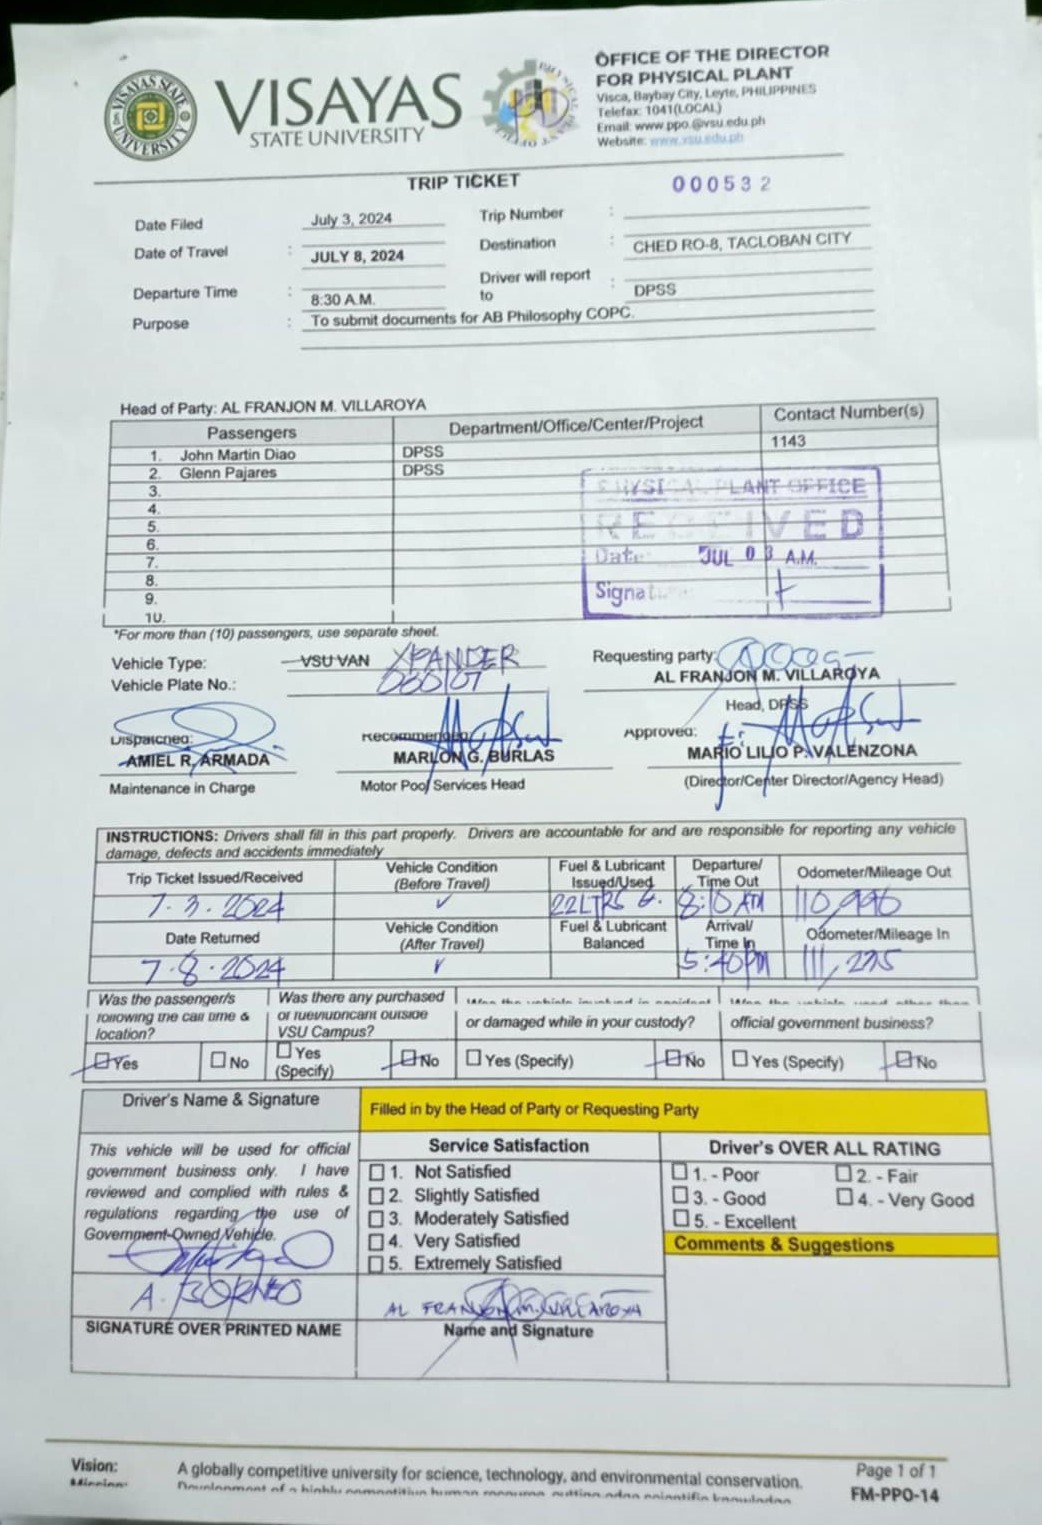 VISAYAS
STATE UNIVERSITY
VISAYAS STATE UNIVERSITY
OFFICE OF THE DIRECTOR
FOR PHYSICAL PLANT
Visca, Baybay City, Leyte, PHILIPPINES
Telefax: 1041(LOCAL)
Email: www.ppo.@vsu.edu.ph
Website: www.vsu.edu.ph
TRIP TICKET 000532
Date Filed July 3, 2024 Trip Number :
Date of Travel : JULY 8, 2024 Destination : CHED RO-8, TACLOBAN CITY
Departure Time : 8:30 A.M. Driver will report to : DPSS
Purpose : To submit documents for AB Philosophy COPC.
Head of Party: AL FRANJON M. VILLAROYA
Passengers Department/Office/Center/Project Contact Number(s)
1. John Martin Diao DPSS 1143
2. Glenn Pajares DPSS
3.
4.
5.
6.
7.
8.
9.
10.
PHYSICAL PLANT OFFICE
RECEIVED
Date: JUL 03 A.M.
Signat
*For more than (10) passengers, use separate sheet.
Vehicle Type: VSU VAN XPANDER
Vehicle Plate No.: 000107
Requesting party:
AL FRANJON M. VILLAROYA
Head, DPSS
Dispatched:
AMIEL R. ARMADA
Maintenance in Charge
Recommended
MARLON G. BURLAS
Motor Pool Services Head
Approved:
MARIO LILIO P. VALENZONA
(Director/Center Director/Agency Head)
INSTRUCTIONS: Drivers shall fill in this part properly. Drivers are accountable for and are responsible for reporting any vehicle
damage, defects and accidents immediately
Trip Ticket Issued/Received Vehicle Condition (Before Travel) Fuel & Lubricant Issued/Used Departure/ Time Out Odometer/Mileage Out
7-3-2024 ✓ 22LTRS G. 8:10 AM 110,996
Date Returned Vehicle Condition (After Travel) Fuel & Lubricant Balanced Arrival/ Time In Odometer/Mileage In
7-8-2024 ✓ 5:40PM 111,225
Was the passenger/s
following the call time &
location?
Yes No
Was there any purchased
or fuel/lubricant outside
VSU Campus?
Yes (Specify) No
Was the vehicle involved in accident
or damaged while in your custody?
Yes (Specify) No
Was the vehicle used other than
official government business?
Yes (Specify) No
Driver's Name & Signature
This vehicle will be used for official
government business only. I have
reviewed and complied with rules &
regulations regarding the use of
Government-Owned Vehicle.
A. BORNEO
SIGNATURE OVER PRINTED NAME
Filled in by the Head of Party or Requesting Party
Service Satisfaction
1. Not Satisfied
2. Slightly Satisfied
3. Moderately Satisfied
4. Very Satisfied
5. Extremely Satisfied
AL FRANJON M. VILLAROYA
Name and Signature
Driver's OVER ALL RATING
1. - Poor 2. - Fair
3. - Good 4. - Very Good
5. - Excellent
Comments & Suggestions
Vision: A globally competitive university for science, technology, and environmental conservation.
Mission: Development of a highly competitive human resource, cutting-edge scientific knowledge
Page 1 of 1
FM-PPO-14